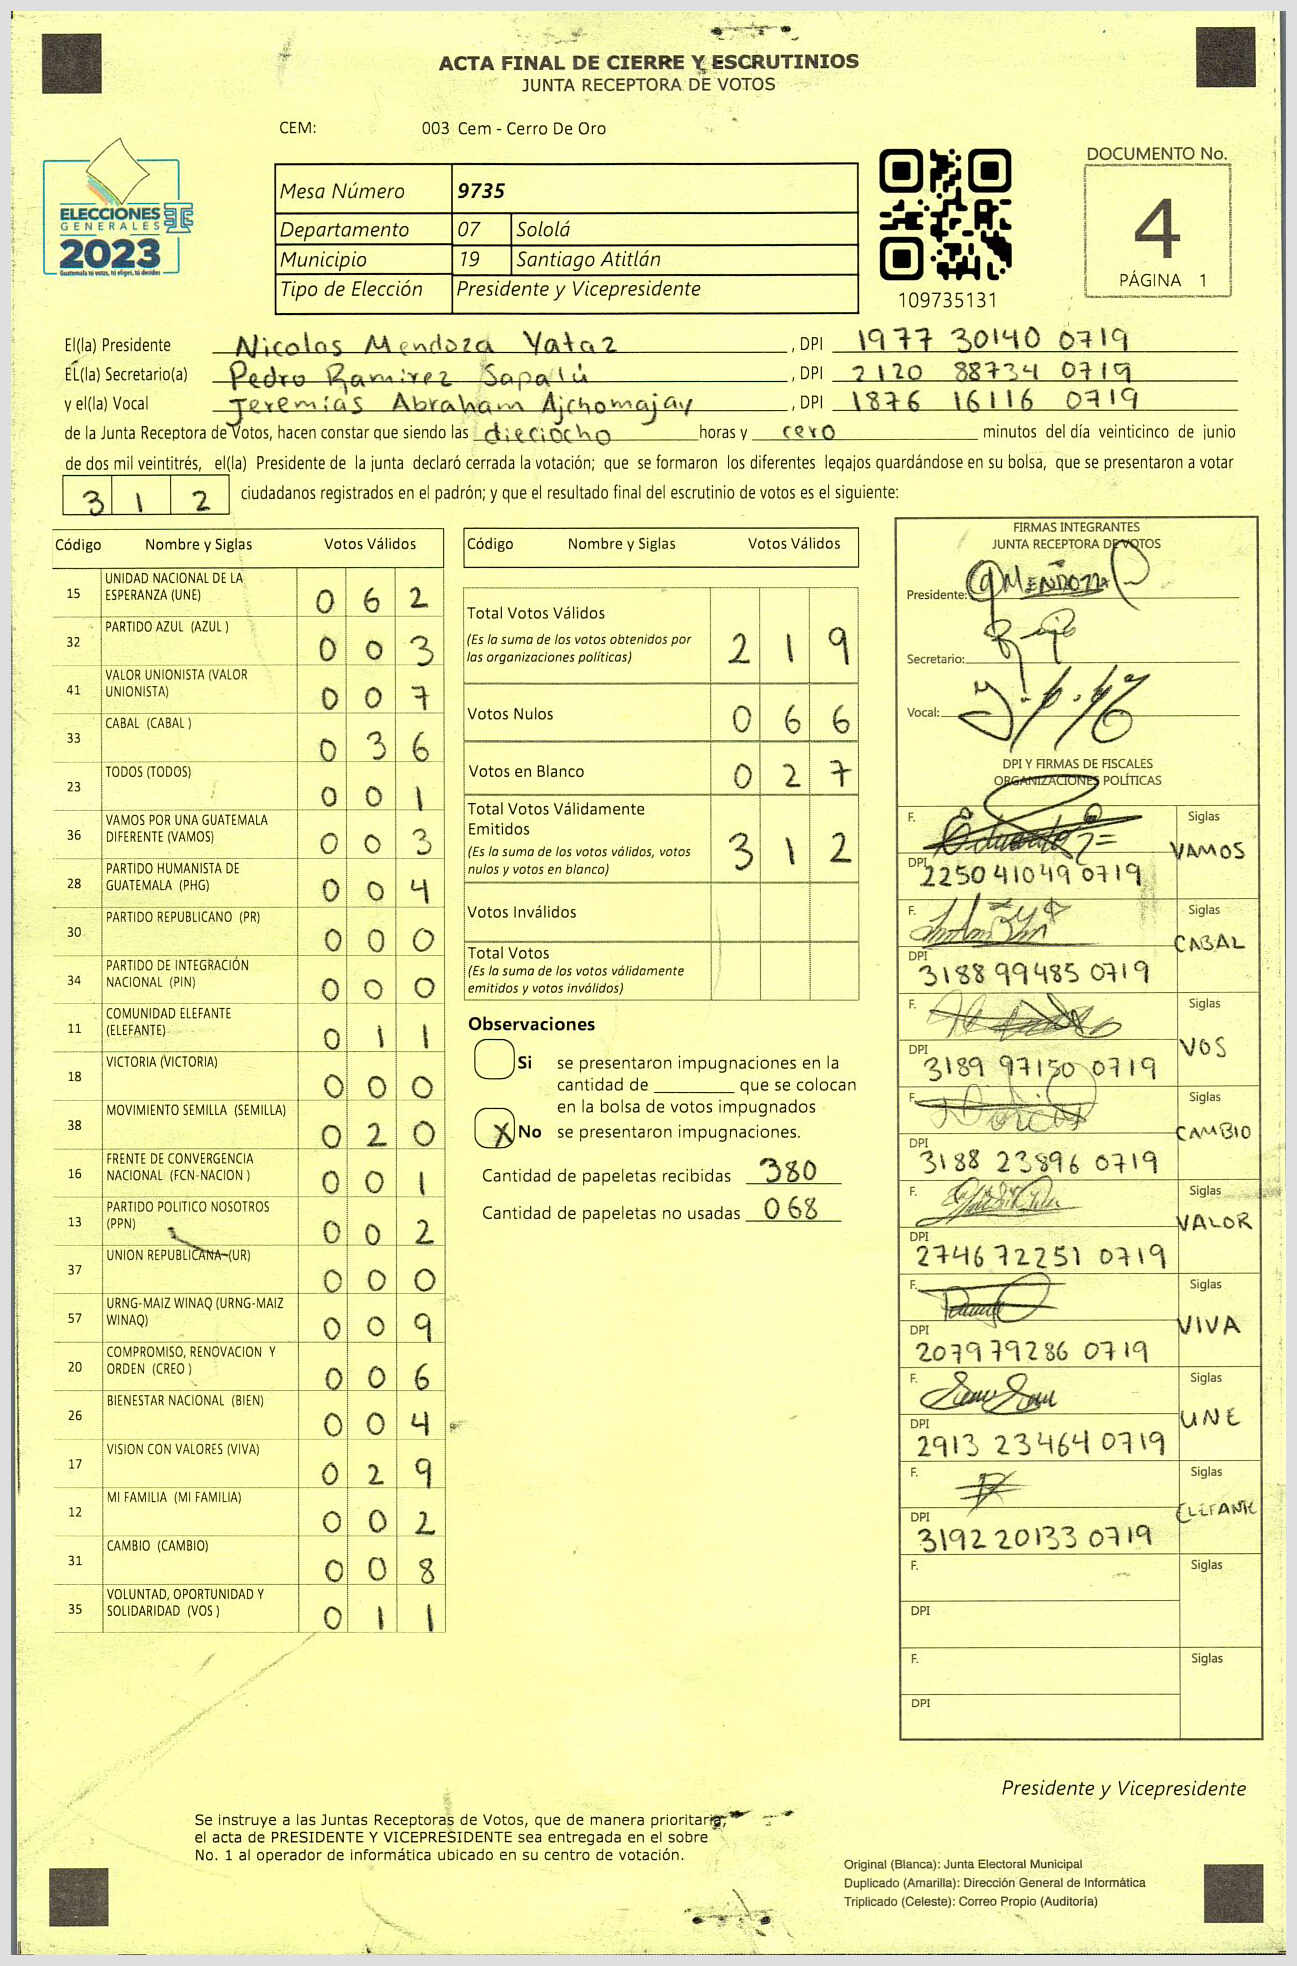 ACTA FINAL DE CIERRE Y ESCRUTINIOS
JUNTA RECEPTORA DE VOTOS
CEM: 003 Cem - Cerro De Oro
ELECCIONES
GENERALES
2023
Guatemala tú votas, tú eliges, tú decides
Mesa Número 9735
Departamento 07 Sololá
Municipio 19 Santiago Atitlán
Tipo de Elección Presidente y Vicepresidente
109735131
DOCUMENTO No.
4
PÁGINA 1
El(la) Presidente Nicolas Mendoza Yataz , DPI 1977 30140 0719
EL(la) Secretario(a) Pedro Ramirez Sapalú , DPI 2120 88734 0719
y el(la) Vocal Jeremías Abraham Ajchomajay , DPI 1876 16116 0719
de la Junta Receptora de Votos, hacen constar que siendo las dieciocho horas y cero minutos del día veinticinco de junio
de dos mil veintitrés, el(la) Presidente de la junta declaró cerrada la votación; que se formaron los diferentes legajos guardándose en su bolsa, que se presentaron a votar
3 1 2 ciudadanos registrados en el padrón; y que el resultado final del escrutinio de votos es el siguiente:
Código Nombre y Siglas Votos Válidos
15 UNIDAD NACIONAL DE LA
ESPERANZA (UNE) 0 6 2
32 PARTIDO AZUL (AZUL ) 0 0 3
41 VALOR UNIONISTA (VALOR
UNIONISTA) 0 0 7
33 CABAL (CABAL ) 0 3 6
23 TODOS (TODOS) 0 0 1
36 VAMOS POR UNA GUATEMALA
DIFERENTE (VAMOS) 0 0 3
28 PARTIDO HUMANISTA DE
GUATEMALA (PHG) 0 0 4
30 PARTIDO REPUBLICANO (PR) 0 0 0
34 PARTIDO DE INTEGRACIÓN
NACIONAL (PIN) 0 0 0
11 COMUNIDAD ELEFANTE
(ELEFANTE) 0 1 1
18 VICTORIA (VICTORIA) 0 0 0
38 MOVIMIENTO SEMILLA (SEMILLA) 0 2 0
16 FRENTE DE CONVERGENCIA
NACIONAL (FCN-NACION ) 0 0 1
13 PARTIDO POLITICO NOSOTROS
(PPN) 0 0 2
37 UNION REPUBLICANA (UR) 0 0 0
57 URNG-MAIZ WINAQ (URNG-MAIZ
WINAQ) 0 0 9
20 COMPROMISO, RENOVACION Y
ORDEN (CREO ) 0 0 6
26 BIENESTAR NACIONAL (BIEN) 0 0 4
17 VISION CON VALORES (VIVA) 0 2 9
12 MI FAMILIA (MI FAMILIA) 0 0 2
31 CAMBIO (CAMBIO) 0 0 8
35 VOLUNTAD, OPORTUNIDAD Y
SOLIDARIDAD (VOS ) 0 1 1
Código Nombre y Siglas Votos Válidos
Total Votos Válidos
(Es la suma de los votos obtenidos por
las organizaciones políticas) 2 1 9
Votos Nulos 0 6 6
Votos en Blanco 0 2 7
Total Votos Válidamente
Emitidos
(Es la suma de los votos válidos, votos
nulos y votos en blanco) 3 1 2
Votos Inválidos
Total Votos
(Es la suma de los votos válidamente
emitidos y votos inválidos)
Observaciones
Si se presentaron impugnaciones en la
cantidad de ________ que se colocan
en la bolsa de votos impugnados
X No se presentaron impugnaciones.
Cantidad de papeletas recibidas 380
Cantidad de papeletas no usadas 068
FIRMAS INTEGRANTES
JUNTA RECEPTORA DE VOTOS
Presidente: Mendoza
Secretario:
Vocal:
DPI Y FIRMAS DE FISCALES
ORGANIZACIONES POLÍTICAS
F. Siglas
VAMOS
DPI 2250 41049 0719
F. Siglas
CABAL
DPI 3188 99485 0719
F. Siglas
VOS
DPI 3189 97150 0719
F. Siglas
CAMBIO
DPI 3188 23896 0719
F. Siglas
VALOR
DPI 2746 72251 0719
F. Siglas
VIVA
DPI 2079 79286 0719
F. Siglas
UNE
DPI 2913 23464 0719
F. Siglas
ELEFANTE
DPI 3192 20133 0719
F. Siglas
DPI
F. Siglas
DPI
Presidente y Vicepresidente
Se instruye a las Juntas Receptoras de Votos, que de manera prioritaria,
el acta de PRESIDENTE Y VICEPRESIDENTE sea entregada en el sobre
No. 1 al operador de informática ubicado en su centro de votación.
Original (Blanca): Junta Electoral Municipal
Duplicado (Amarilla): Dirección General de Informática
Triplicado (Celeste): Correo Propio (Auditoría)